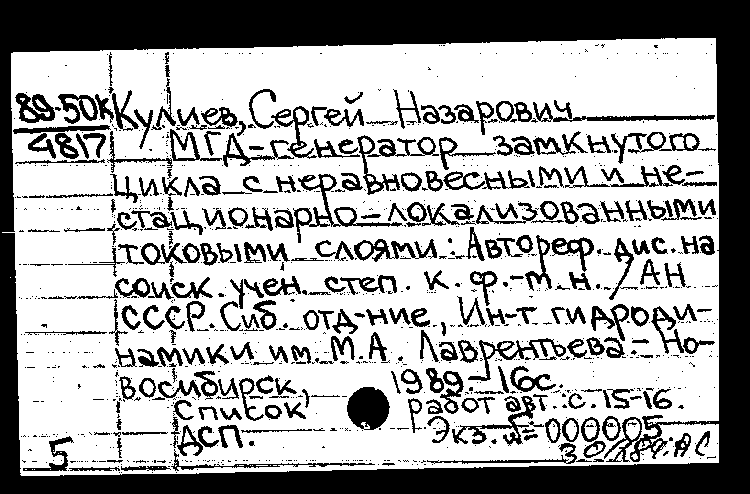 89-50к Кулиев, Сергей Назарович
4817 МГД-генератор замкнутого
цикла с неравновесными и не-
стационарно-локализованными
токовыми слоями: Автореф. дис. на
соиск. учен. степ. к. ф.-т. н. / АН
СССР. Сиб. отд-ние, Ин-т гидроди-
намики им. М.А. Лаврентьева.- Но-
восибирск, 1989.-16с.
Список работ авт. с. 15-16.
ДСП. Экз. № 000005
5